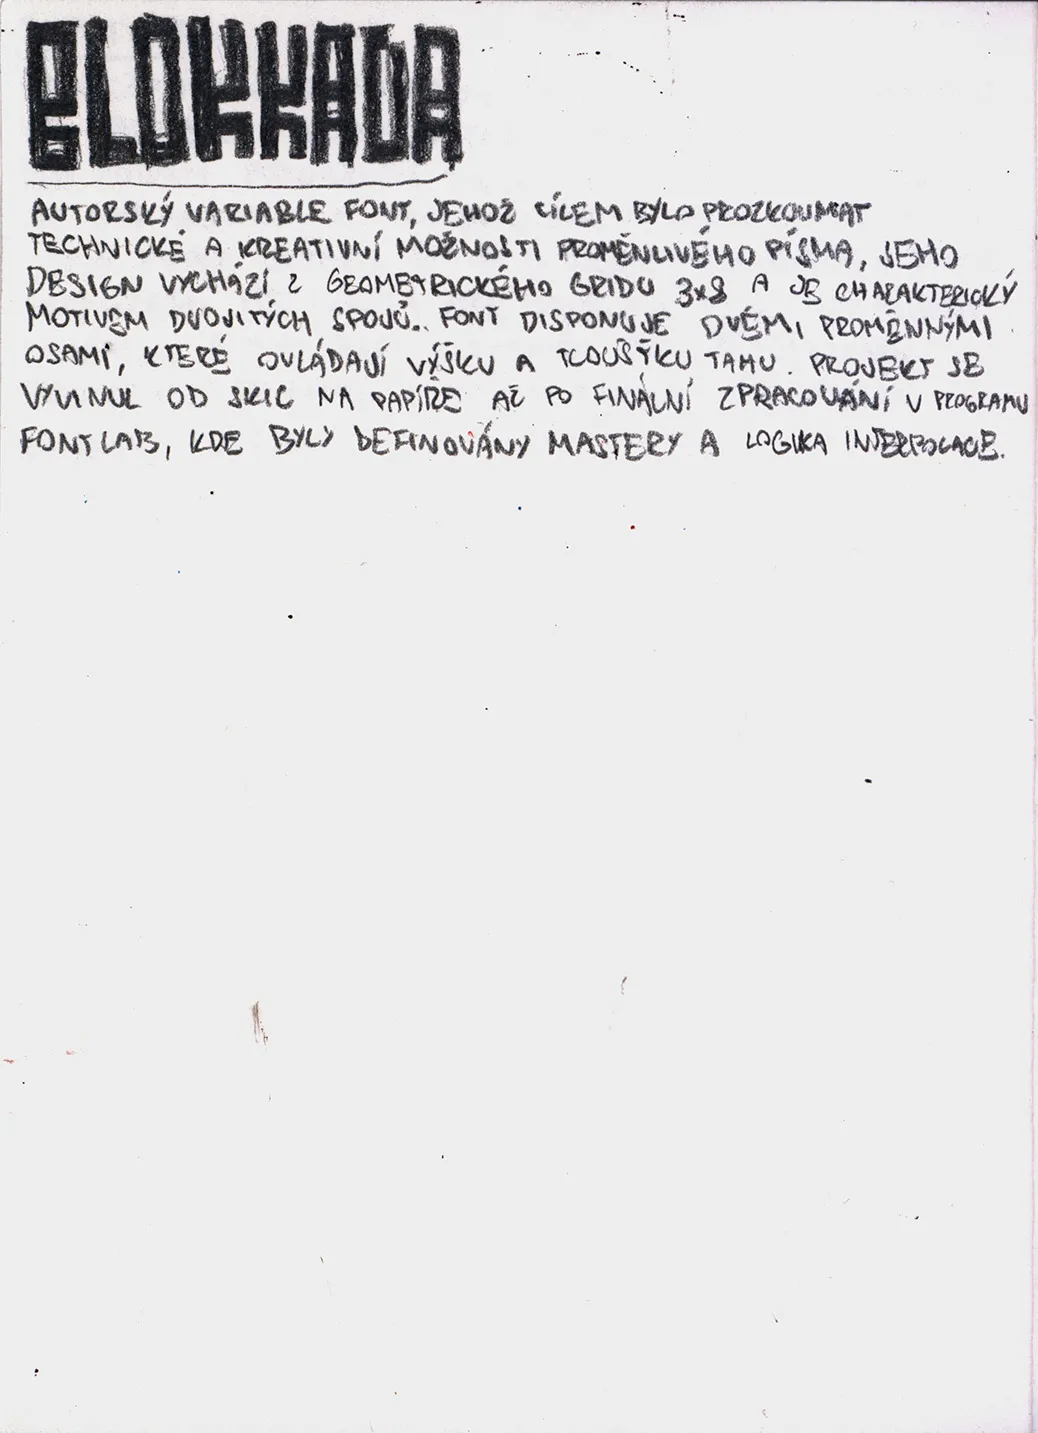 BLOKKADA
AUTORSKÝ VARIABLE FONT, JEHOŽ CÍLEM BYLO PROZKOUMAT
TECHNICKÉ A KREATIVNÍ MOŽNOSTI PROMĚNLIVÉHO PÍSMA, JEHO
DESIGN VYCHÁZÍ Z GEOMETRICKÉHO GRIDU 3x8 A JE CHARAKTERICKÝ
MOTIVEM DVOJITÝCH SPOJŮ. FONT DISPONUJE DVĚMI PROMĚNNÝMI
OSAMI, KTERÉ OVLÁDAJÍ VÝŠKU A TLOUŠŤKU TAHU. PROJEKT SE
VYVINUL OD SKIC NA PAPÍŘE AŽ PO FINÁLNÍ ZPRACOVÁNÍ V PROGRAMU
FONTLAB, KDE BYLY DEFINOVÁNY MASTERY A LOGIKA INTERPOLACE.